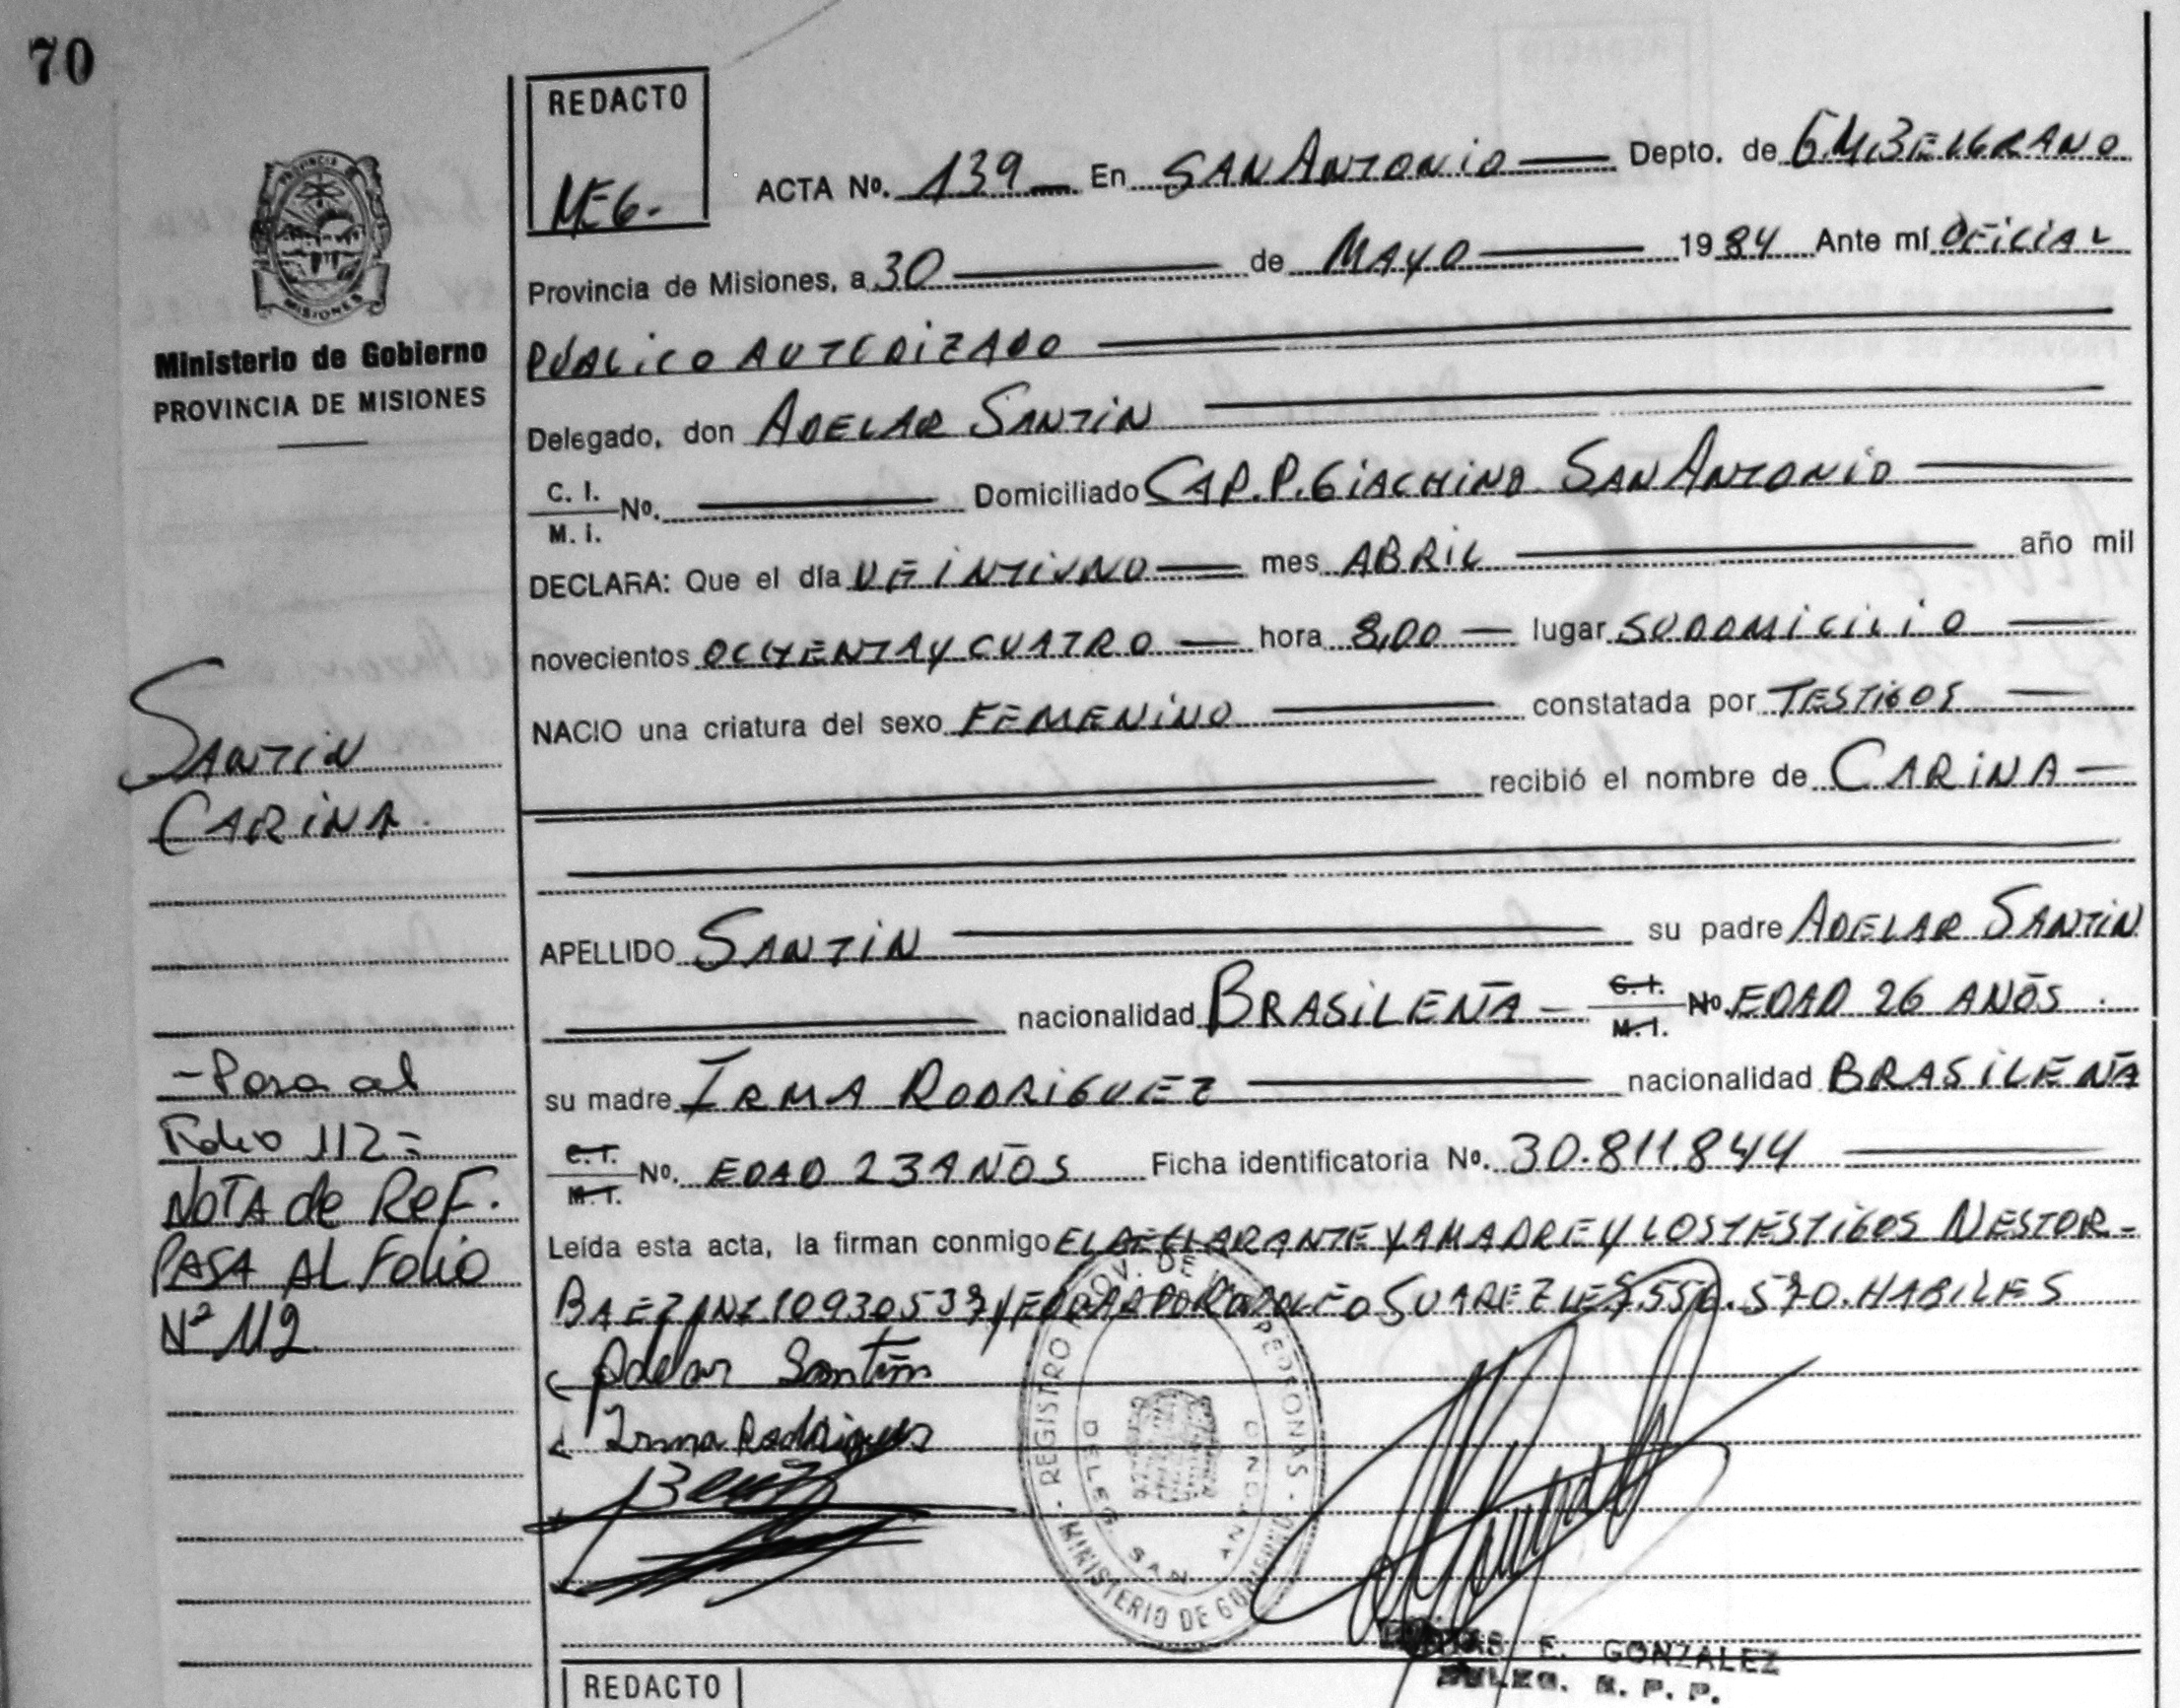 70
REDACTO
MEG.-
ACTA No. 139 En SAN ANTONIO Depto. de G.M.BELGRANO
Provincia de Misiones, a 30 de MAYO 1984 Ante mí OFICIAL
PÚBLICO AUTORIZADO
Delegado, don ADELAR SANTIN
C. I.
M. I. No. Domiciliado CAP.P.GIACHINO SAN ANTONIO
DECLARA: Que el día VEINTIUNO mes ABRIL año mil
novecientos OCHENTA Y CUATRO hora 8,00 lugar SU DOMICILIO
NACIO una criatura del sexo FEMENINO constatada por TESTIGOS
recibió el nombre de CARINA
APELLIDO SANTIN su padre ADELAR SANTIN
nacionalidad BRASILEÑA C.I. M.I. No. EDAD 26 AÑOS.
su madre IRMA RODRIGUEZ nacionalidad BRASILEÑA
C.I. M.I. No. EDAD 23 AÑOS Ficha identificatoria No. 30.811.844
Leída esta acta, la firman conmigo EL DECLARANTE LA MADRE Y LOS TESTIGOS NESTOR-
BAEZ SUAREZ HABILES
Adelar Santin
Irma Rodrigues
REGISTRO PROV. DE PERSONAS
MINISTERIO DE GOBIERNO
DELEG. SAN ANTONIO
F. GONZALEZ
DELEG. R. P. P.
REDACTO
PROVINCIA
MISIONES
Ministerio de Gobierno
PROVINCIA DE MISIONES
SANTIN
CARINA.
-Pasa al
Folio 112=
NOTA de REF.
PASA AL FOLIO
Nº 112